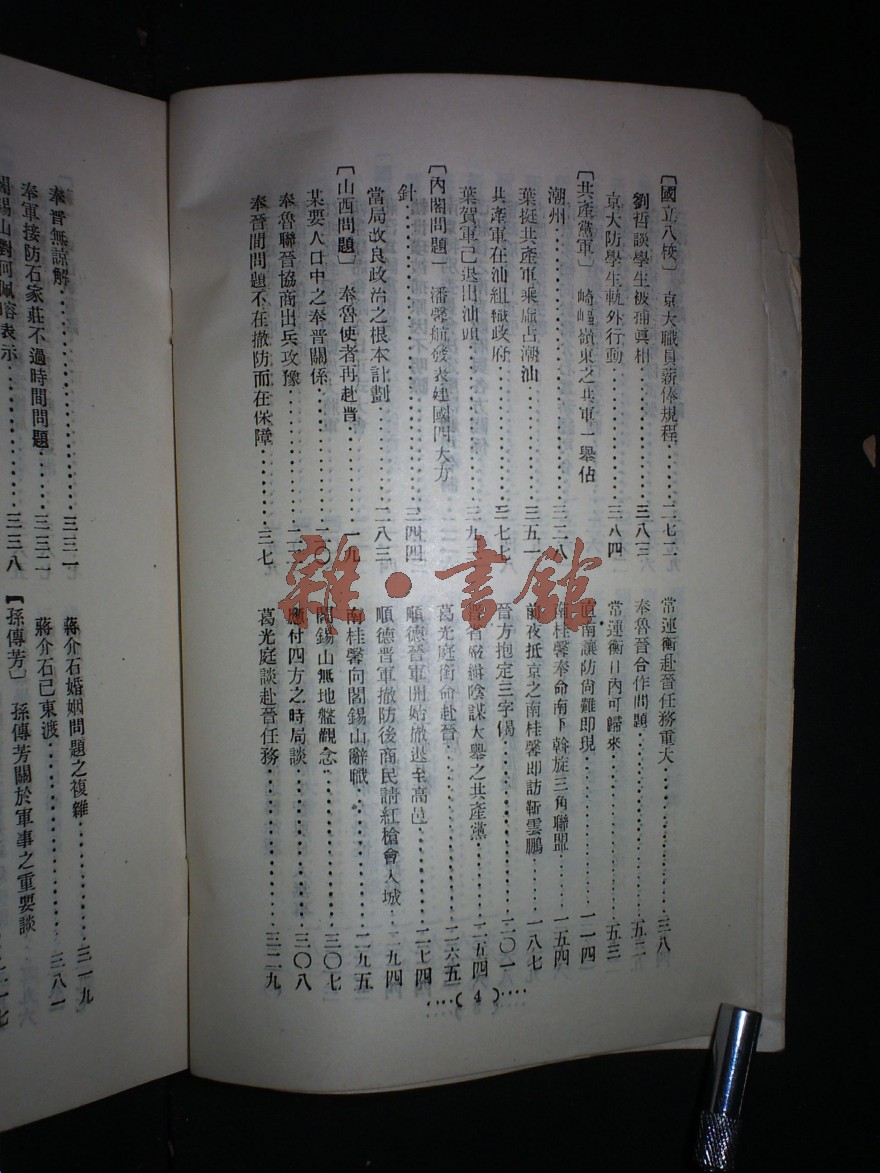 〔國立八校〕　京大職員薪俸規程
劉哲談學生被捕眞相……三八三
京大防學生軌外行動……三八四
〔共產黨軍〕　崎嶇嶺東之共軍一舉佔
潮州……三二八
葉挺共產軍乘虛占潮汕……三五一
共產軍在汕組織政府
葉賀軍已退出汕頭
〔內閣問題〕　潘馨航發表建國四大方
針……三四四
當局改良政治之根本計劃……二八三
〔山西問題〕　奉魯使者再赴晋……一九
某要人口中之奉晋關係
奉魯聯晉協商出兵攻豫
奉晉間問題不在撤防而在保障……三七
常運衡赴晉任務重大……三八
奉魯晉合作問題……五二
常運衡日內可歸來……五三
直南讓防尙難即現……一一四
南桂馨奉命南下斡旋三角聯盟……一五四
前夜抵京之南桂馨即訪靳雲鵬……一八七
晉方抱定三字偈……二〇一
晉省嚴緝陰謀大舉之共產黨……二五四
葛光庭銜命赴晉……二六五
順德晉軍開始撤退至高邑……二七四
順德晋軍撤防後商民請紅槍會入城……二九四
南桂馨向閻錫山辭職……二九五
閻錫山無地盤觀念……三〇七
應付四方之時局談……三〇八
葛光庭談赴晉任務……三二九
……(4)……
奉晋無諒解……三三一
奉軍接防石家莊不過時間問題……三三二
閻錫山對何佩瑢表示……三三八
蔣介石婚姻問題之複雜……三一九
蔣介石已東渡……三八一
〔孫傳芳〕　孫傳芳關於軍事之重要談
雜·書館